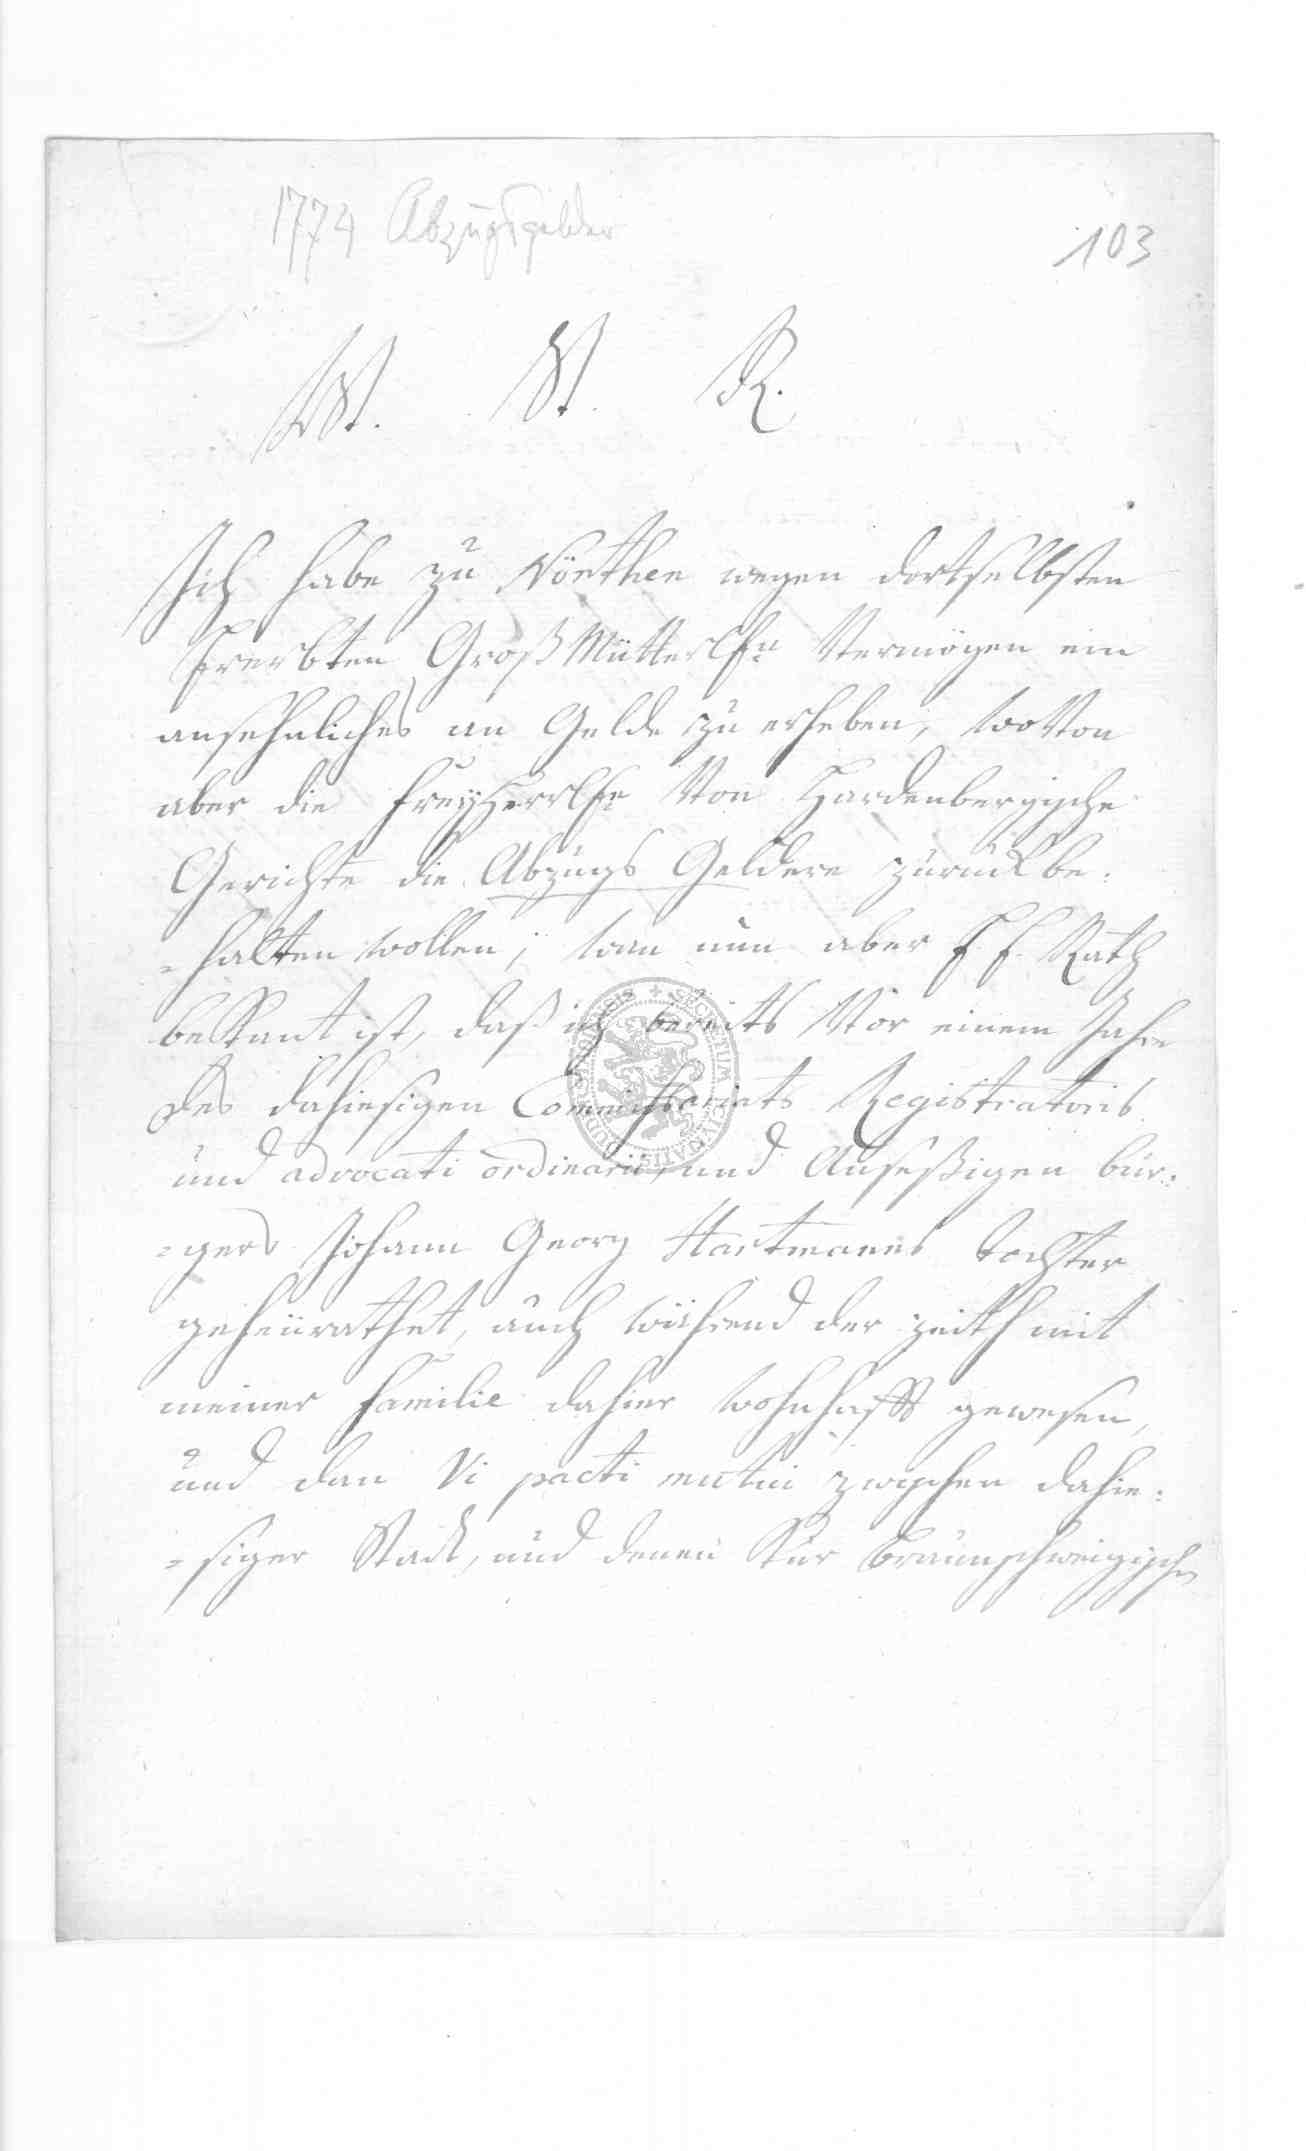 1774 Abzugsgelder
103
St. R.
Ich habe zu Nörthen wegen dortselbsten
Ererbten Groß Mütterlhn Vermögen ein
ansehnliches an Gelde zu erheben, wovon
aber die freyherrlhe Von Hardenbergische
Gerichte die Abzugs Geldere zurück be:
=halten wollen; wan nun aber E E. Rath
bekant ist, daß ich bereits Vor einem Jahre
des dahiesigen Commissariats Registratoris
und advocati ordinarii, und Anseßigen bür:
=gers Johann Georg Hartmanns tochter
geheürathet, auch während der zeith mit
meiner familie dahier wohnhafft gewesen,
und dan Vi pacti mutui zwischen dahie:
=siger Stadt, und denen Kur Braunschweigischen
SECRETUM CIVITATIS DUDERSTADENSIS